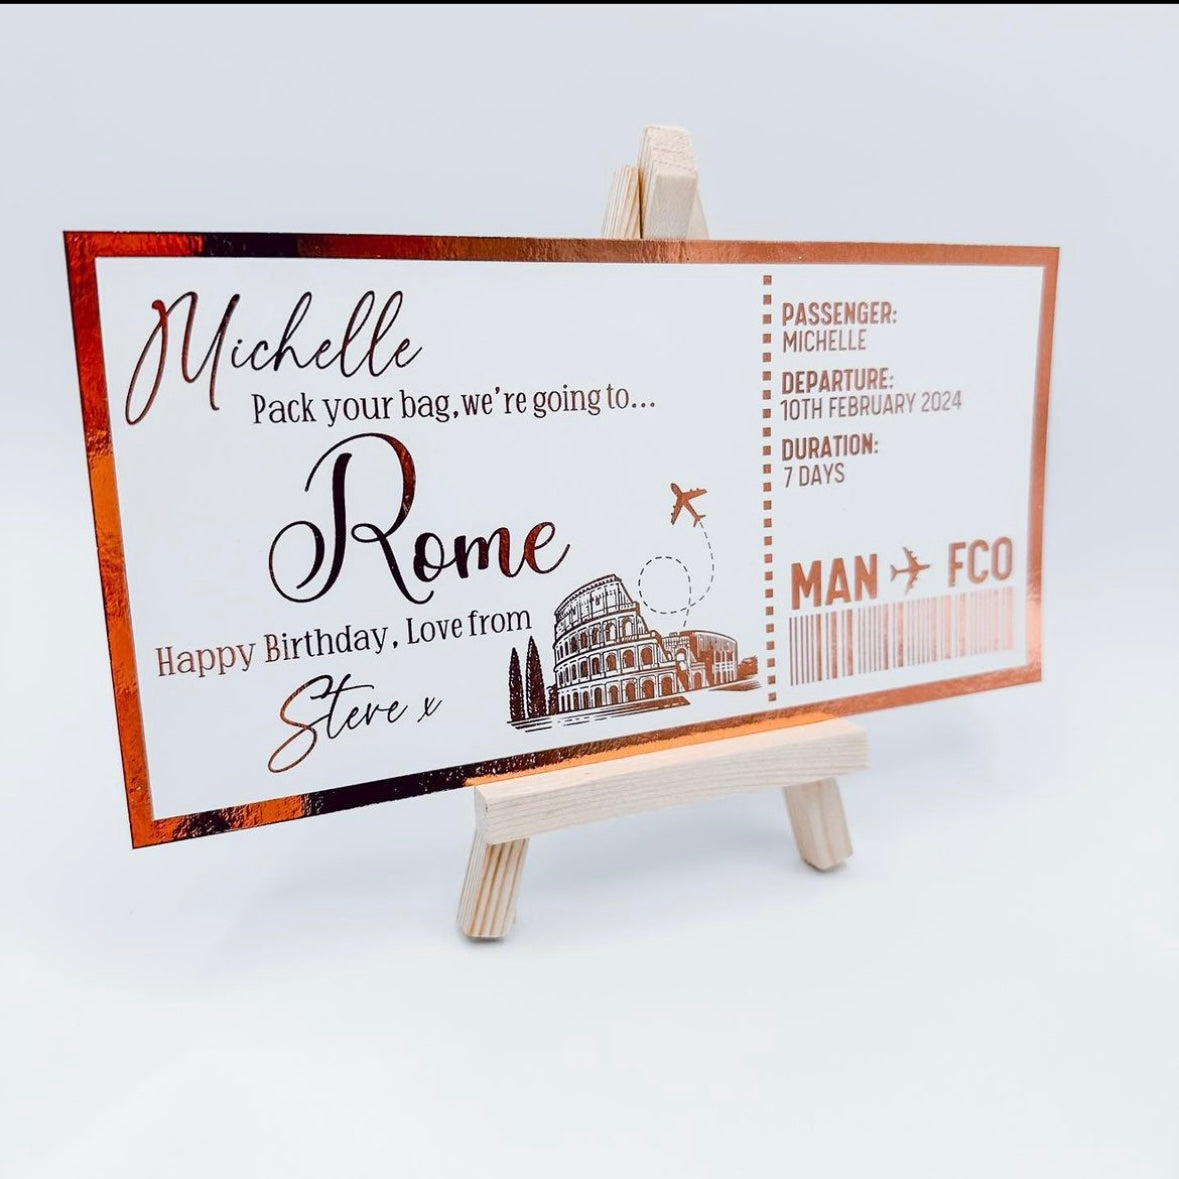 Michelle
Pack your bag, we're going to...
Rome
Happy Birthday, Love from
Steve x
PASSENGER:
MICHELLE
DEPARTURE:
10TH FEBRUARY 2024
DURATION:
7 DAYS
MAN FCO